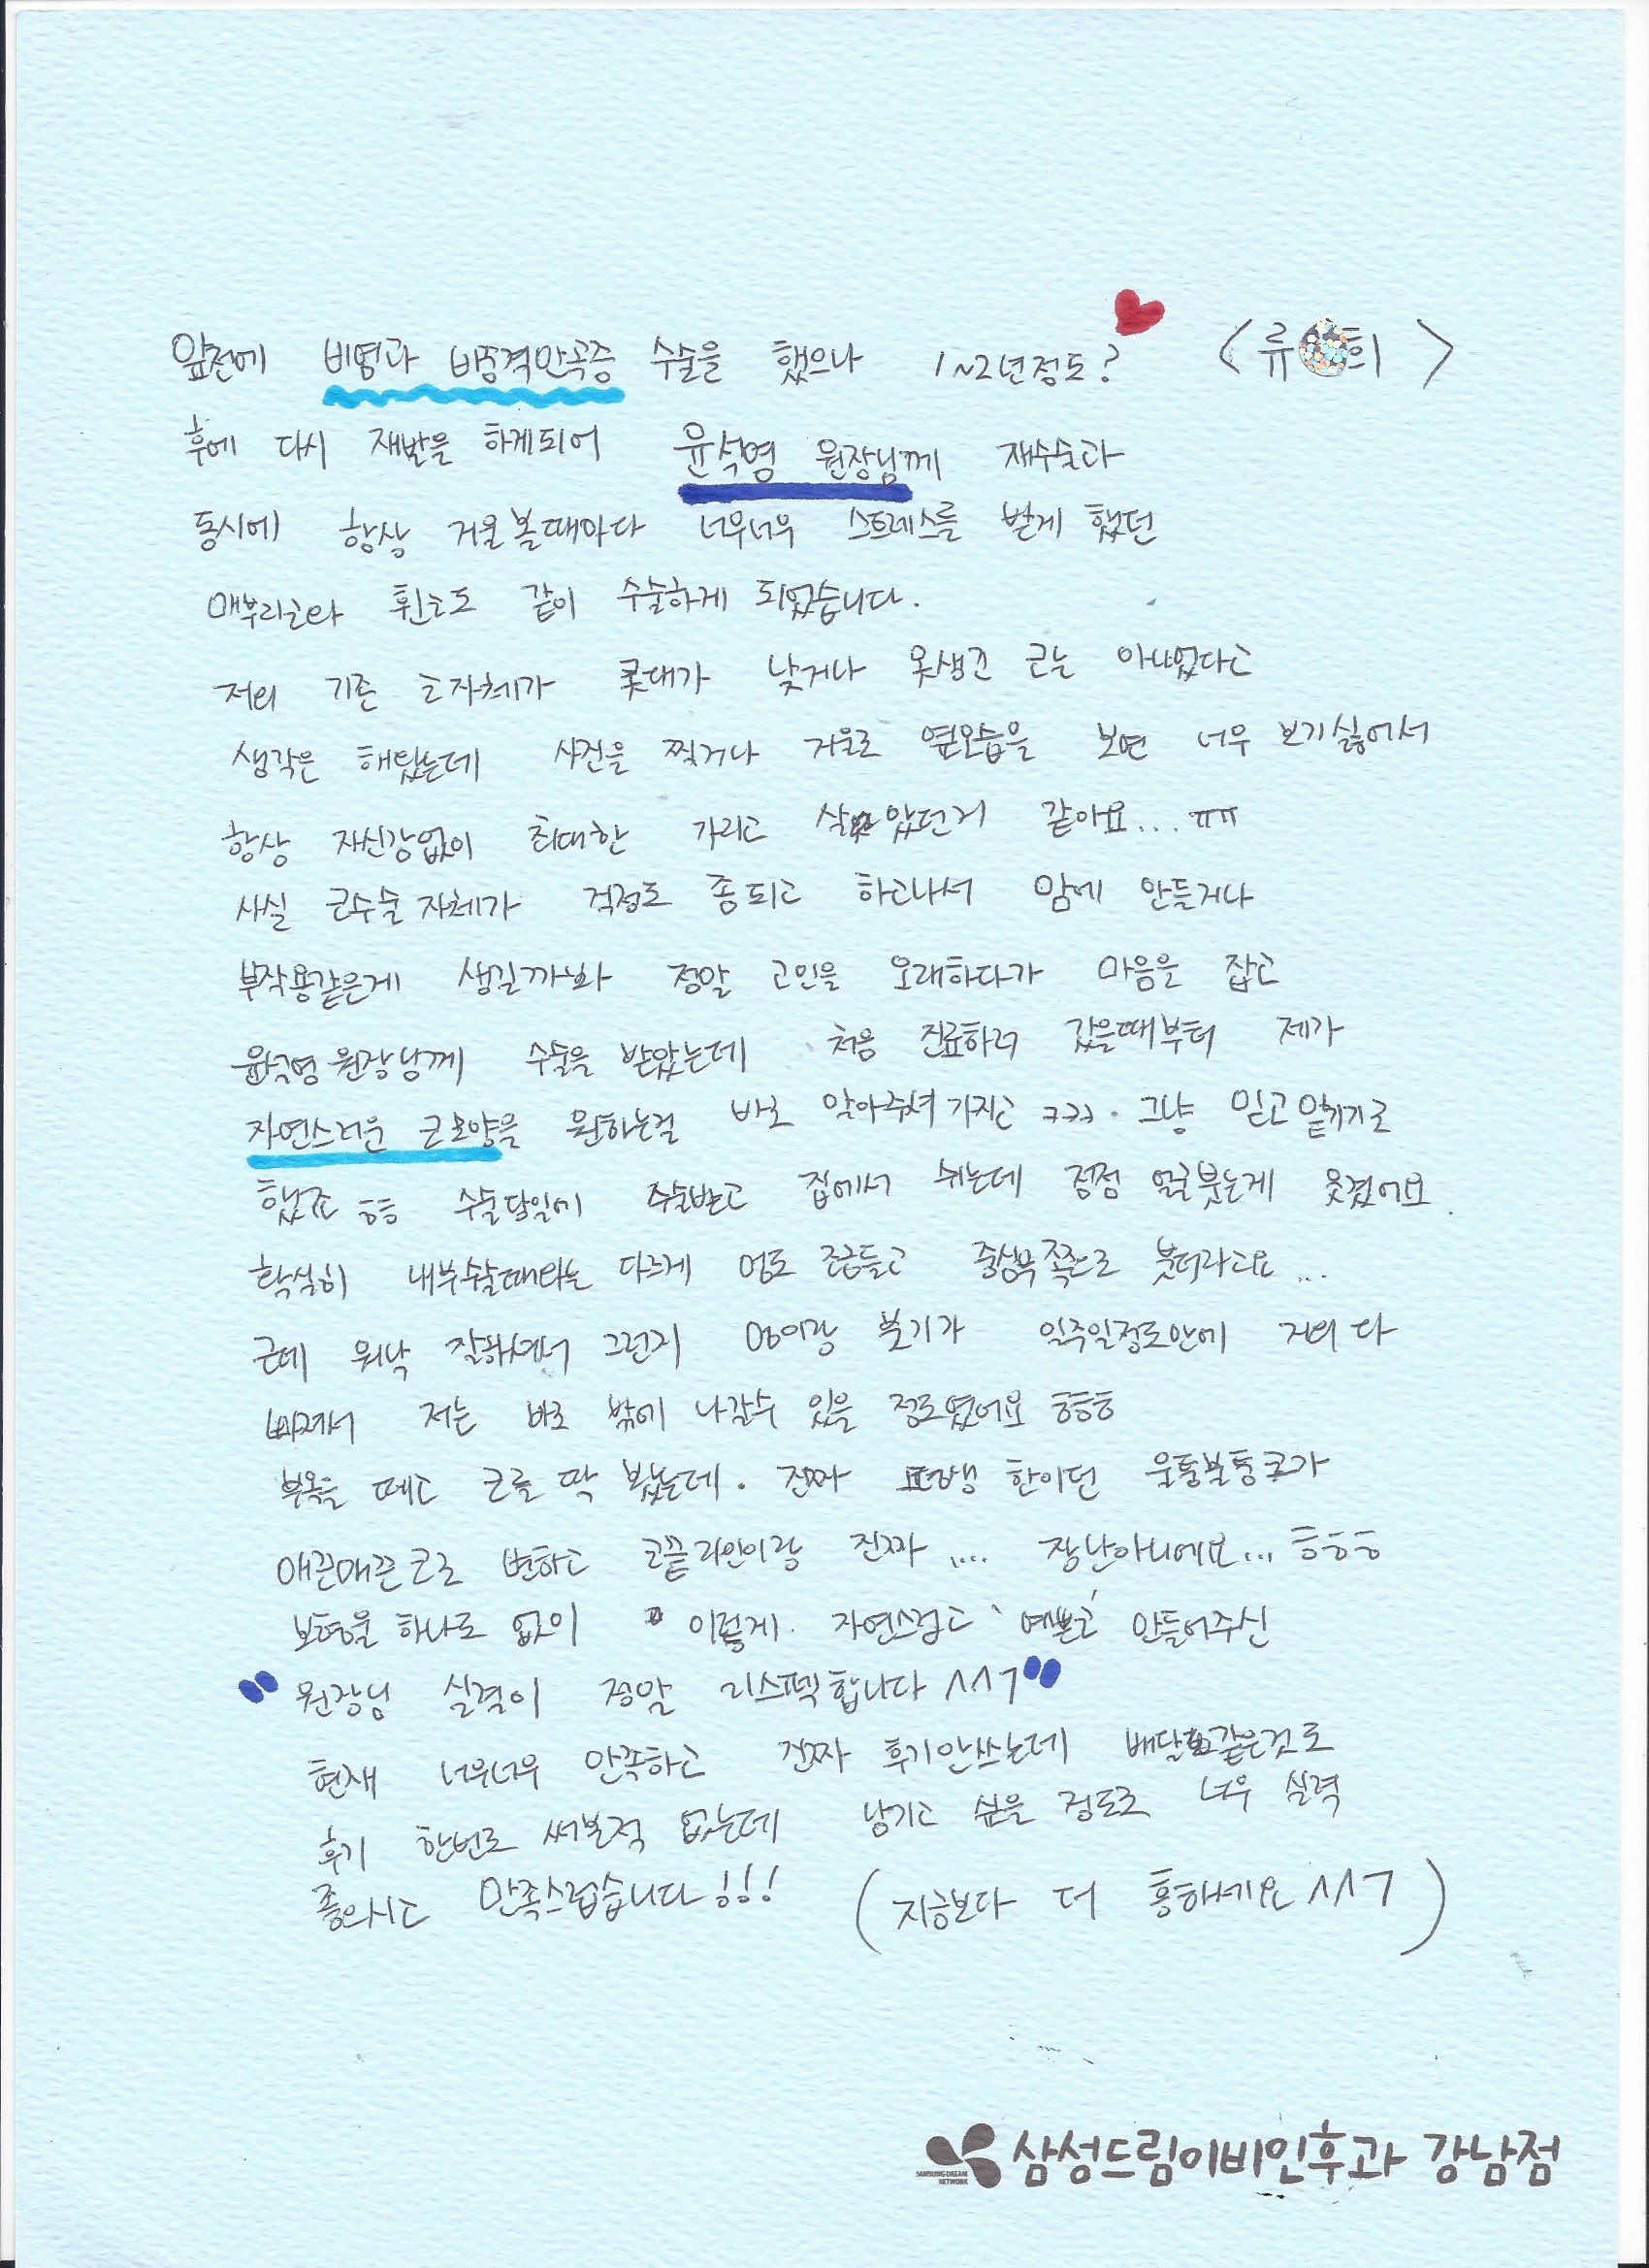 앞전에 비염과 비중격만곡증 수술을 했으나 1~2년정도? <류 희>
후에 다시 재발을 하게되어 윤석영 원장님께 재수술과
동시에 항상 거울볼때마다 너무너무 스트레스를 받게 했던
매부리코와 휜코도 같이 수술하게 되었습니다.
저의 기존 코자체가 콧대가 낮거나 못생긴 코는 아니었다고
생각은 해왔는데 사진을 찍거나 거울로 옆모습을 보면 너무 보기싫어서
항상 자신감없이 최대한 가리고 살았던거 같아요... ㅠㅠ
사실 코수술자체가 걱정도 좀되고 하고나서 맘에 안들거나
부작용같은게 생길까봐 정말 고민을 오래하다가 마음을 잡고
윤석영 원장님께 수술을 받았는데 처음 진료하러 갔을때부터 제가
자연스러운 코모양을 원하는걸 바로 알아주셔가지고 ㅋㅋㅋ. 그냥 믿고 맡기기로
했죠 ㅎㅎ 수술당일에 수술받고 집에서 쉬는데 점점 얼굴붓는게 웃겼어요.
확실히 내부수술때와는 다르게 멍도 조금들고 붓더라고요...
근데 워낙 잘하셔서 그런지 멍이랑 붓기가 일주일정도안에 거의 다
빠져서 저는 바로 밖에 나갈수 있을 정도였어요 ㅎㅎㅎ
부목을 떼고 코를 딱 봤는데. 진짜 평생 한이던 울퉁불퉁코가
매끈매끈코로 변하고 코끝라인이랑 진짜 .... 장난아니에요... ㅎㅎㅎ
보형물 하나도 없이 이렇게. 자연스럽고 예쁜코 만들어주신
" 원장님 실력이 정말 리스펙합니다 ^^7 "
현재 너무너무 만족하고 진짜 후기안쓰는데 배달 같은것도
후기 한번도 써본적 없는데 남기고 싶을 정도로 너무 실력
좋으시고 만족스럽습니다!!! (지금보다 더 흥하세요^^7)
SAMSUNG DREAM NETWORK
삼성드림이비인후과 강남점